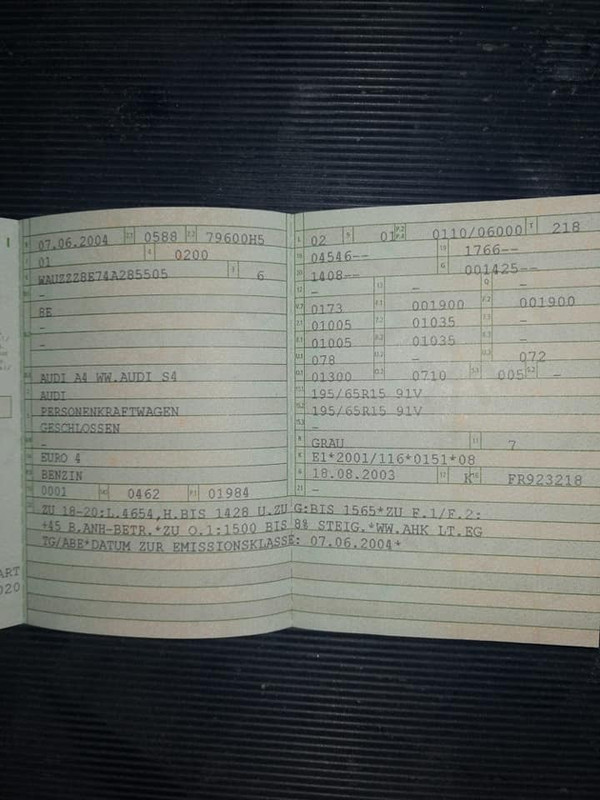 07.06.2004 0588 79600H5
01 0200
WAUZZZ8E74A285505 6
-
8E
-
-
AUDI A4 WW.AUDI S4
AUDI
PERSONENKRAFTWAGEN
GESCHLOSSEN
-
EURO 4
BENZIN
0001 0462 01984
02 01 0110/06000 218
04546-- 1766--
1408-- 001425--
- - -
0173 001900 001900
01005 01035 -
01005 01035 -
078 - 072
01300 0710 005 -
195/65R15 91V
195/65R15 91V
-
GRAU 7
E1*2001/116*0151*08
18.08.2003 K FR923218
-
ZU 18-20:L.4654,H.BIS 1428 U.ZU G:BIS 1565*ZU F.1/F.2:
+45 B.ANH-BETR.*ZU O.1:1500 BIS 8% STEIG.*WW.AHK LT.EG
TG/ABE*DATUM ZUR EMISSIONSKLASSE: 07.06.2004*
ART
020